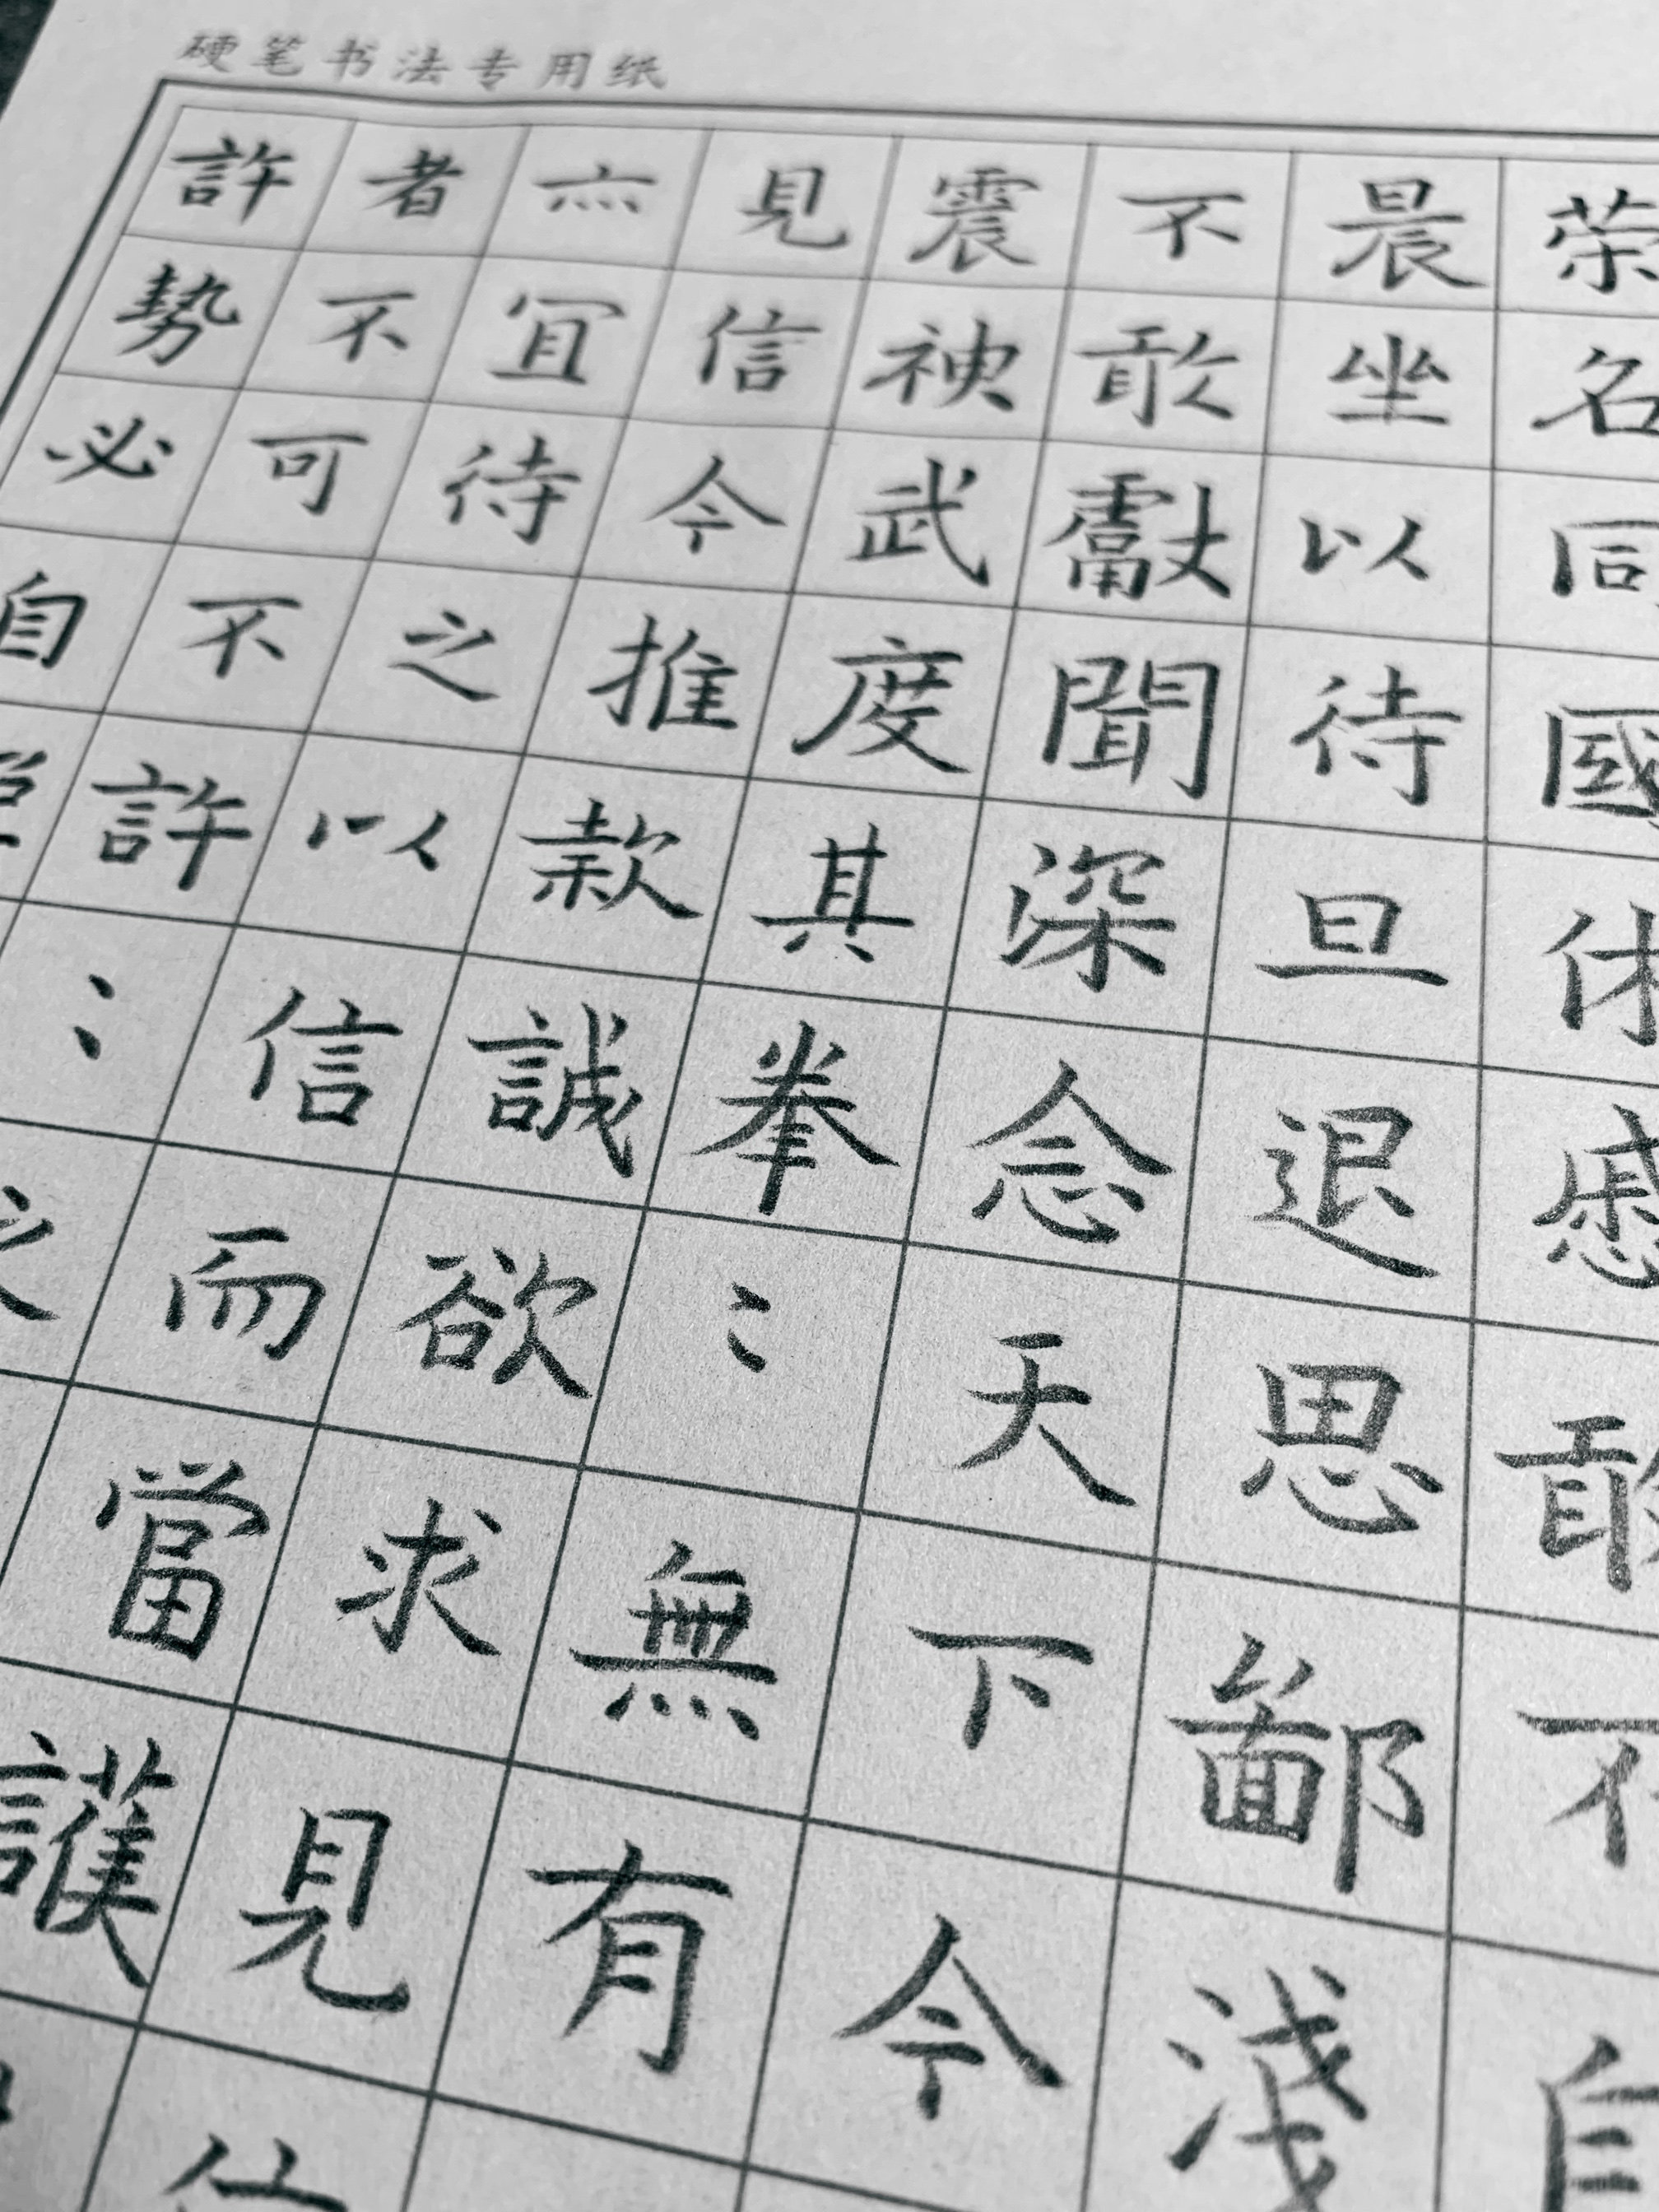 硬笔书法专用纸
荣名同國休慼敢不自
晨坐以待旦退思鄙淺
不敢獻聞深念天下今
震神武度其拳〻無有
見信今推款誠欲求見
亦宜待之以信而當護
者不可不許〻之
許勢必自